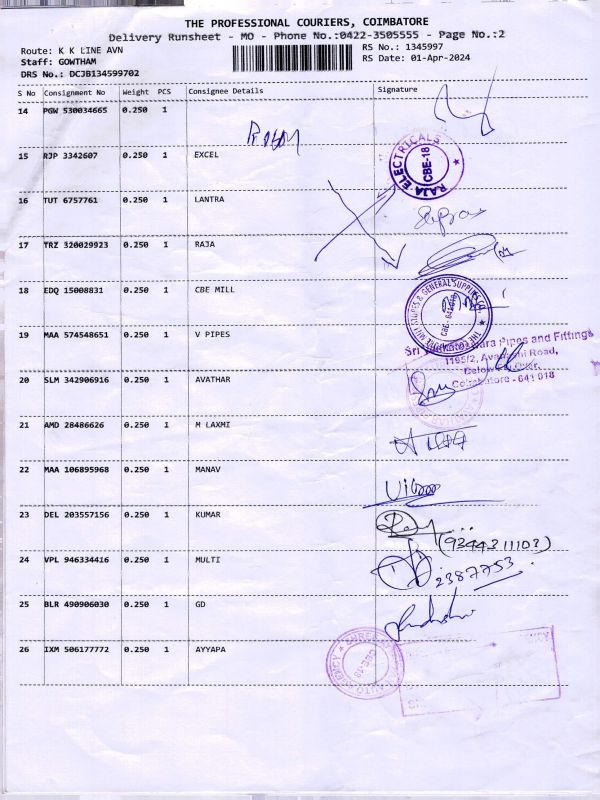 THE PROFESSIONAL COURIERS, COIMBATORE
Delivery Runsheet - MO - Phone No.:0422-3505555 - Page No.:2
Route: K K LINE AVN
Staff: GOWTHAM
DRS No.: DCJB134599702
RS No.: 1345997
RS Date: 01-Apr-2024
S No Consignment No Weight PCS Consignee Details Signature
14 PGW 530034665 0.250 1
15 RJP 3342607 0.250 1 EXCEL
RAJA ELECTRICALS
CBE-18
16 TUT 6757761 0.250 1 LANTRA
17 TRZ 320029923 0.250 1 RAJA
18 EDQ 15008831 0.250 1 CBE MILL
19 MAA 574548651 0.250 1 V PIPES
Pipes and Fittings
1195/2, Road,
Coimbatore - 641 018
20 SLM 342906916 0.250 1 AVATHAR
21 AMD 28486626 0.250 1 M LAXMI
22 MAA 106895968 0.250 1 MANAV
23 DEL 203557156 0.250 1 KUMAR
24 VPL 946334416 0.250 1 MULTI
2387753
25 BLR 490906030 0.250 1 GD
26 IXM 506177772 0.250 1 AYYAPA
CBE-18